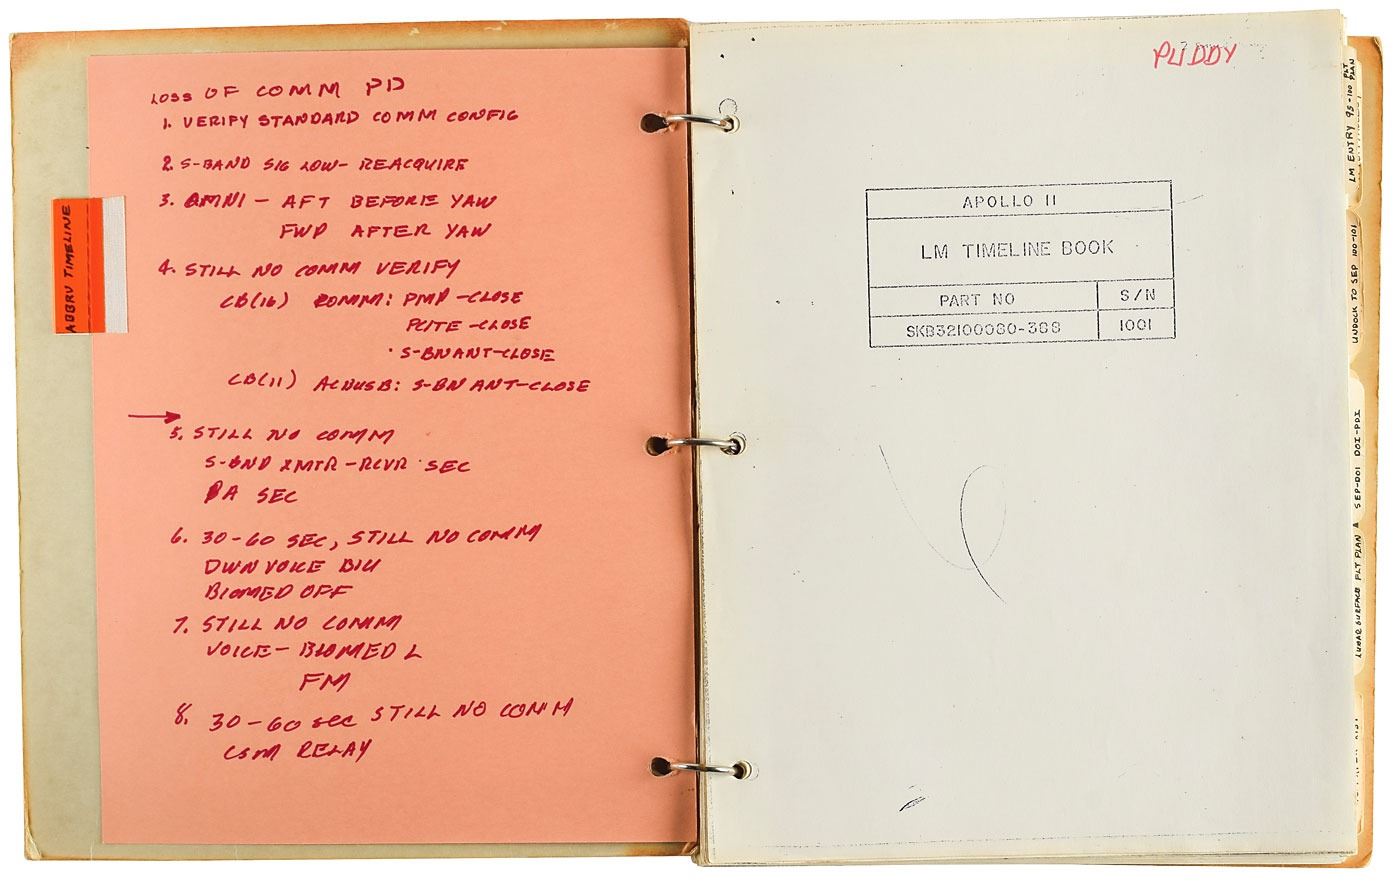 ABBRV TIMELINE
LOSS OF COMM PD
1. VERIFY STANDARD COMM CONFIG
2. S-BAND SIG LOW - REACQUIRE
3. OMNI - AFT BEFORE YAW
FWD AFTER YAW
4. STILL NO COMM VERIFY
CB(16) COMM: PMP - CLOSE
- CLOSE
S-BN ANT - CLOSE
CB(11) S-BN ANT - CLOSE
5. STILL NO COMM
S-BND XMTR - RCVR SEC
PA SEC
6. 30-60 SEC, STILL NO COMM
DWN VOICE BU
BIOMED OFF
7. STILL NO COMM
VOICE - BIOMED L
FM
8. 30-60 sec STILL NO COMM
CSM RELAY
PUDDY
APOLLO 11
LM TIMELINE BOOK
PART NO
S/N
1001
LM ENTRY 95-100 FLT PLAN
UNDOCK TO SEP 100-101
SEP-DOI DOI-PDI
LUNAR SURFACE FLT PLAN